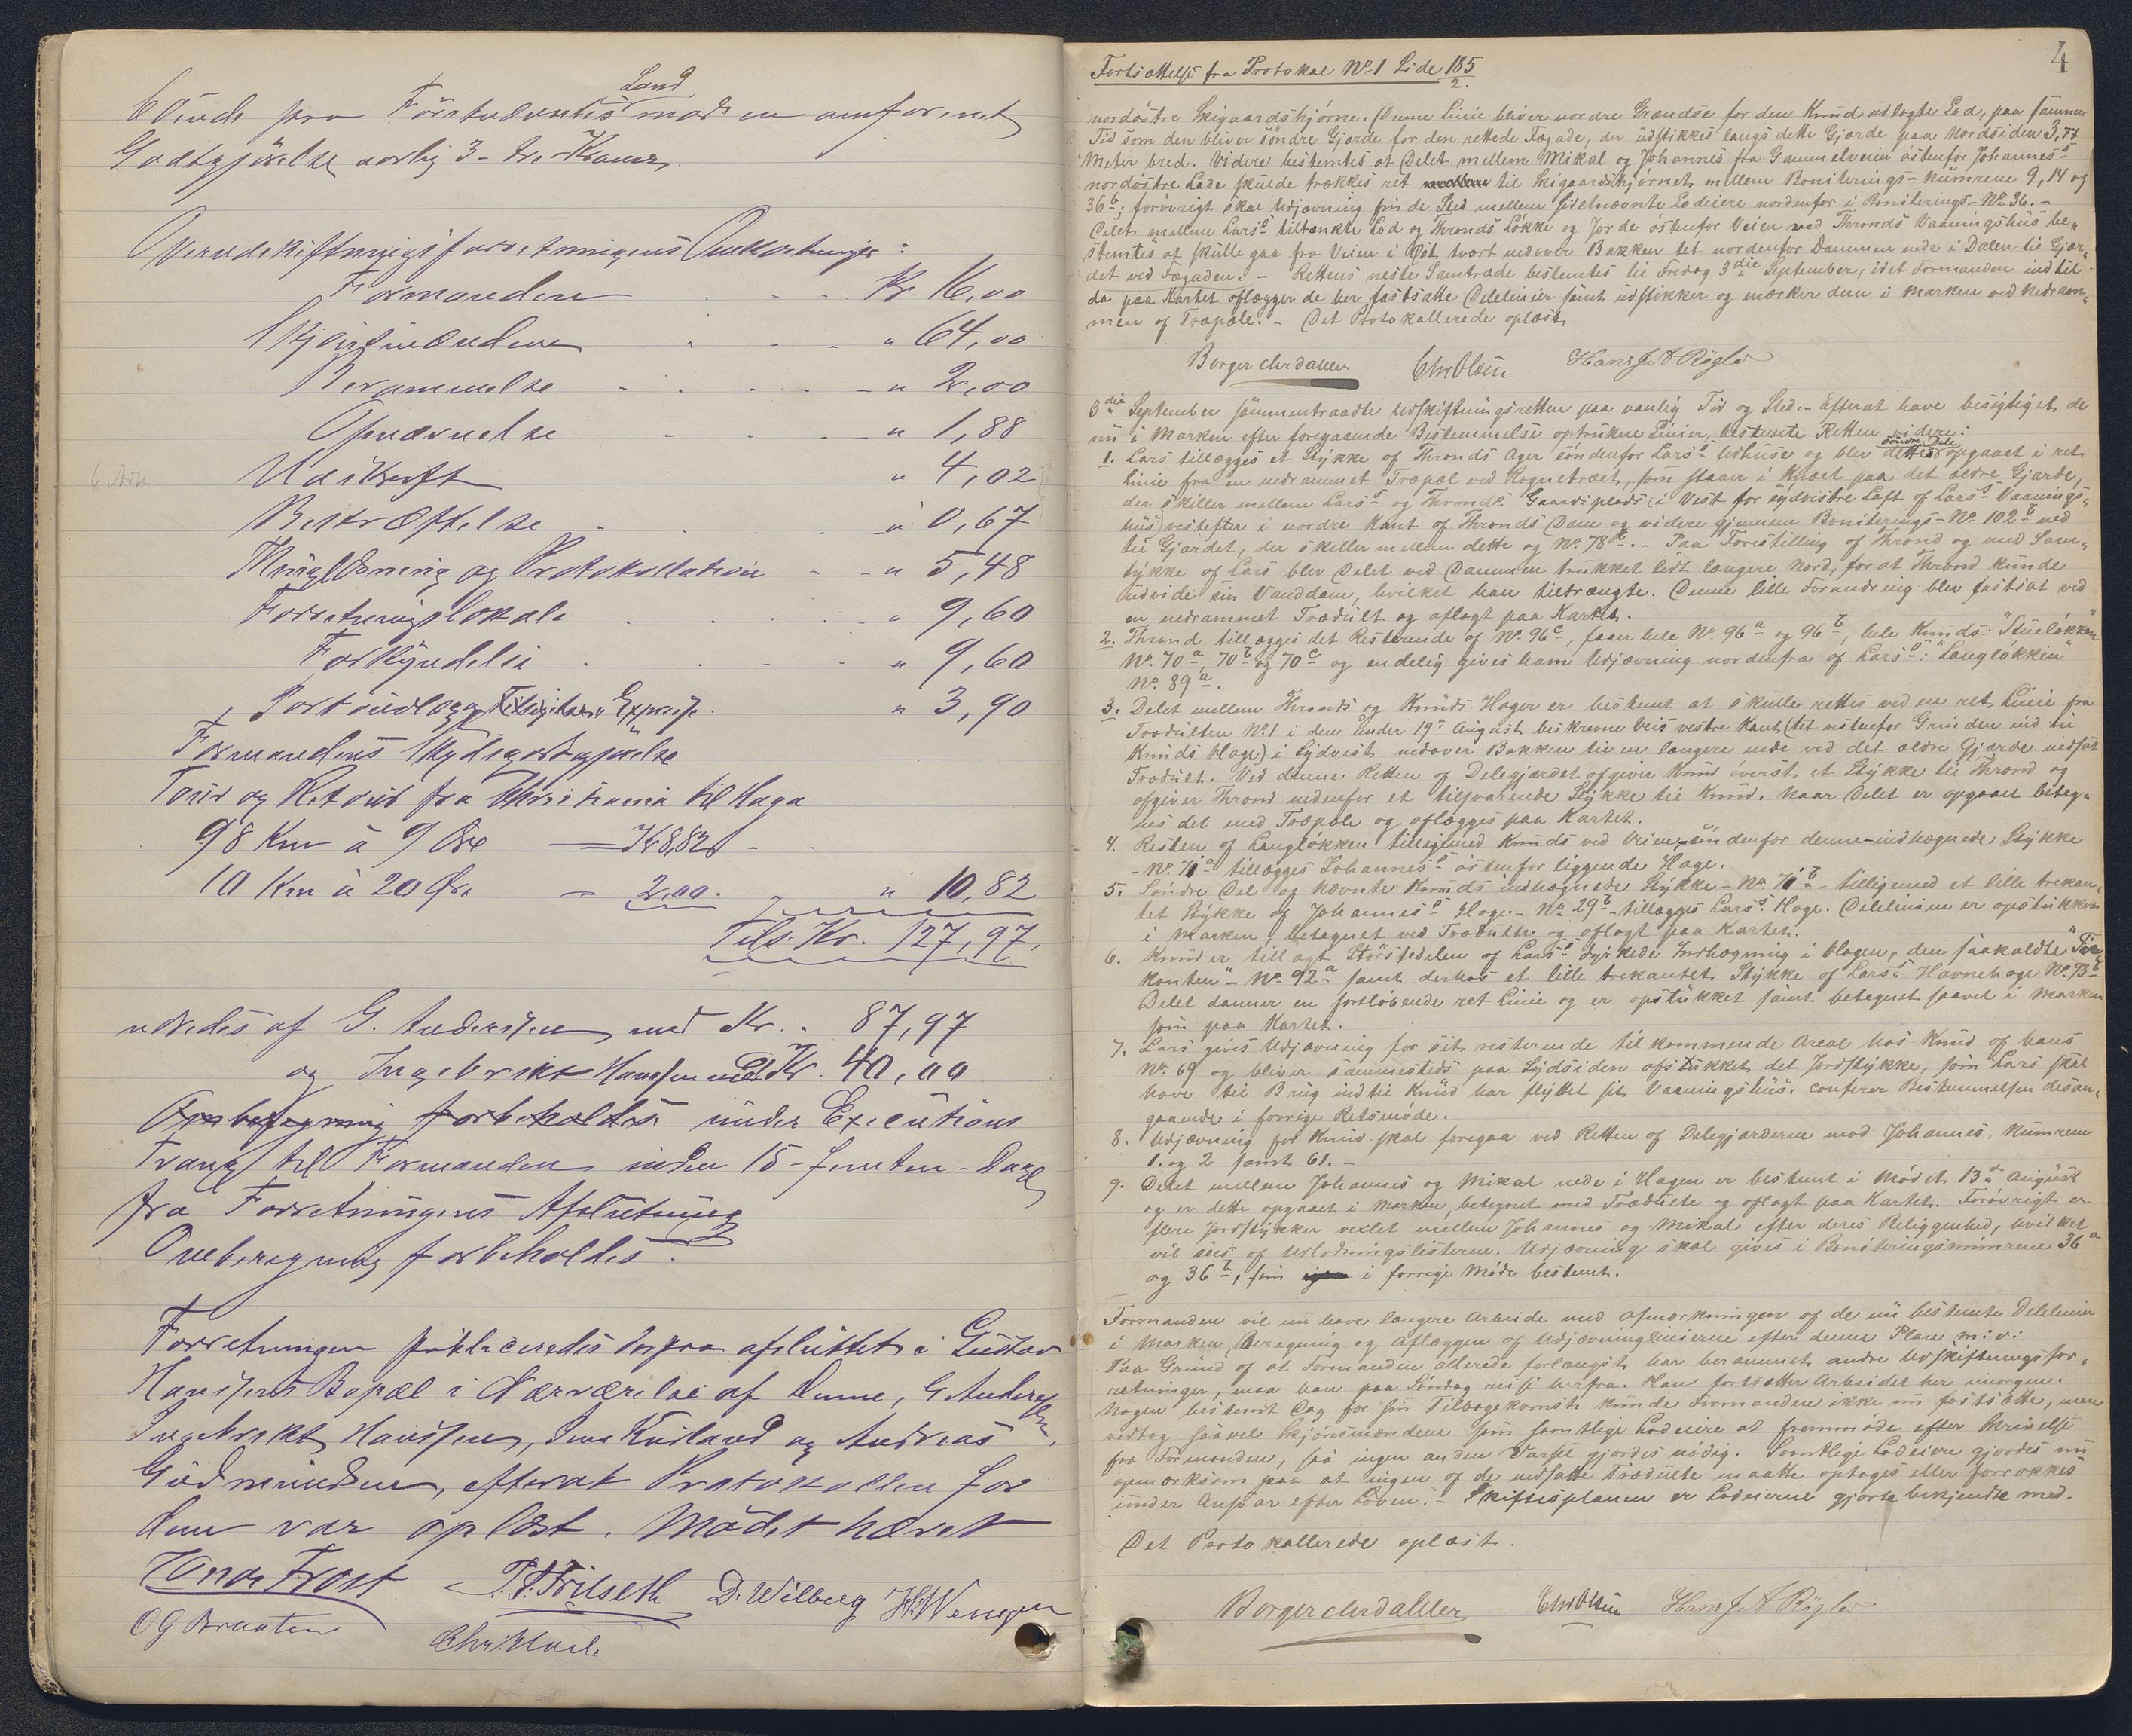 Land
pra Förstnævntes mod en anforent
Godtgjörelse aarlig 3 - tre Kroner.
Overudskiftningsforretningens Omkostninger:
Formanden Kr. 16,00
Skjönsmændene " 64,00
Berammelse " 2,00
Opnævnelse " 1,88
6 Ark Udskrift " 4,02
Bekræftelse " 0,67
Thinglæsning og Protokollation " 5,48
Forretningslokale " 9,60
Forkyndelse " 9,60
Portoudlæg Expresse " 3,90
Formandens Skydsgodtgjörelse
Tour og Retour fra Christiania til Haga
98 Km à 9 Øre = Kr 8,82
10 Km à 20 Øre = 2,00 " 10,82
Tils. Kr. 127,97.
udredes af G. Andersen med Kr. 87,97
og Ingebrikt Hanssen med Kr. 40,00
Omberegning forbeholdes under Executions
Tvang til Formanden inden 15 - femten - Dage
fra Forretningens Afslutning
Omberegning forbeholdes.
Forretningen publiceredes derpaa afsluttet i Gustav
Hansens Bopæl i Nærværelse af denne, G. Andersen,
Ingebrikt Hanssen, Jens Kusland og Andreas
Gudmundsen, efterat Protokollen for
dem var oplæst. Mödet hævet
Frost P. P. Frilseth D. Wilberg
O G Braaten
4
Fortsættelse fra Protokol No 1 Side 185/2.
nordöstre Skigaardshjörne. Denne Linie bliver nordre Grændse for den Knud udlagte Lod, paa samme
Tid som den bliver söndre Gjærde for den rettede Fægade, der udstikkes langs dette Gjærde paa Nordsiden 3,77
Meter bred. Videre bestemtes at Delet mellem Mikal og Johannes fra Gammelveien östenfor Johannes's
nordöstre Lade skulde trækkes ret mellem til Skigaardshjörnet mellem Boniterings-Numrene 9, 14 og
36 b; forövrigt skal Udjævning finde Sted mellem sidstnævnte Lodeiere nordenfor i Boniterings-No 36. -
Delet mellem Lars's tiltænkte Lod og Thronds Løkke og Jorde östenfor Veien ved Thronds Vaaningshus be-
stemtes at skulle gaa fra Veien i Öst, tvært nedover Bakken tet nordenfor Dammen nede i Dalen til Gjær-
det ved Fægaden. - Rettens neste Samtræde bestemtes til Fredag 3die September, idet Formanden indtil
da paa Kartet aflægger de her fastsatte Delelinier samt udstikker og mærker dem i Marken ved Nedram-
men af Træpæle. - Det Protokollerede oplæst.
Borger Chr Dahler Chr Olsen Hans J A Rigle
3die September sammentraadte Udskiftningsretten paa vanlig Tid og Sted. - Efterat have besigtiget de
nu i Marken efter foregaaende Bestemmelse optrukne Linier, bestemte Retten videre:
1. Lars tillægges et Stykke af Thronds Ager söndenfor Lars's Udhuse og blev dettes söndre Dele opgaaet i ret
Linie fra en nedrammet Træpæl ved Rognetræet, som staar i Knæet paa det ældre Gjærde,
der skiller mellem Lars's og Thronds Gaardsplads (i Vest for sydvestre Laft af Lars's Vaanings-
hus) vestefter i nordre Kant af Thronds Dam og videre gjennem Boniterings-No 102 b ned
til Gjærdet, der skiller mellem dette og No. 78 b. - Paa Forestilling af Thrond og med Sam-
tykke af Lars blev Delet ved Dammen trukket lidt længere Nord, for at Thrond kunde
udvide sin Vanddam, hvilket han tiltrængte. Denne lille Forandring blev fastsat ved
en nedrammet Træduelt og aflagt paa Kartet.
2. Thrond tillægges det Resterende af No. 96 c, faaer hele No 96 a og 96 b, hele Knuds: "Stueløkken"
No. 70 a, 70 b og 70 c og endelig gives ham Udjævning nordenfra af Lars's: "Langløkken"
No. 89 a.
3. Delet mellem Thronds og Knuds Hager er bestemt at skulle rettes ved en ret Linie fra
Træduelten No 1 i den under 19de August beskrevne Veis vestre Kant (tet vestenfor Grinden ind til
Knuds Hage) i Sydvest nedover Bakken til en længere nede ved det ældre Gjærde nedsat
Træduelt. Ved denne Retten af Delegjærdet afgiver Knud överst et Stykke til Thrond og
afgiver Thrond nedenfor et tilsvarende Stykke til Knud. Naar Delet er opgaaet beteg-
nes det med Træpæle og aflægges paa Kartet.
4. Resten af Langløkken tilligemed Knuds ved Veien söndenfor denne indhegnede Stykke
- No. 71 a tillægges Johannes's östenfor liggende Hage.
5. Söndre Del og nævnte Knuds indhegnede Stykke - No 71 b - tilligemed et lille trekan-
tet Stykke af Johannes's Hage - No 29 b - tillægges Lars's Hage. Delelinien er opstukken
i Marken, betegnet ved Træduelte og aflagt paa Kartet.
6. Knud er tillagt Störstedelen af Lars's dyrkede Indhegning i Hagen, den saakaldte
kanten" - No 92 a samt derhos et lille trekantet Stykke af Lars's Havnehage No. 93 b
Delet danner en fortløbende ret Linie og er opstukket samt betegnet saavel i Marken
som paa Kartet.
7. Lars gives Udjævning for sit resterende tilkommende Areal hos Knud af hans
No. 69 og bliver sammesteds paa Sydsiden afstukket det Jordstykke, som Lars skal
have til Brug indtil Knud har flyttet sit Vaaningshus, conferer Bestemmelsen desan-
gaaende i forrige Retsmöde.
8. Udjævning for Knud skal foregaa ved Retten af Delegjærderne mod Johannes, Numrene
1. og 2 samt 61. -
9. Delet mellem Johannes og Mikal nede i Hagen er bestemt i Mödet 13de August
og er dette opgaaet i Marken, betegnet med Træduelte og aflagt paa Kartet. Forövrigt er
flere Jordstykker vexlet mellem Johannes og Mikal efter deres Beliggenhed, hvilket
vil sees af Udlodningslisterne. Udjævning skal gives i Boniteringsnumrene 36 a
og 36 b, som i forrige Möde bestemt.
Formanden vil nu have længere Arbeide med Afmærkningen af de nu bestemte Delelinier
i Marken, Beregning og Aflæggen af Udjævningslinierne efter denne Plan m: v:
Paa Grund af at Formanden allerede forlængst har berammet andre Udskiftningsfor-
retninger, maa han paa Söndag reise herfra. Han fortsætter Arbeidet her imorgen.
Nogen bestemt Dag for sin Tilbagekomst kunde Formanden ikke nu fastsætte, men
vedtog saavel Skjönsmændene som samtlige Lodeiere at fremmöde efter Skrivelse
fra Formanden, saa ingen anden Varsel gjordes nödig. Samtlige Lodeiere gjordes nu
opmærksom paa at ingen af de nedsatte Træduelte maatte optages eller forrokkes
under Ansvar efter Loven. - Skiftesplanen er Lodeierne gjorte bekjendte med.
Det Protokollerede oplæst.
Borger Chr Dahler Chr Olsen Hans J A Rigle